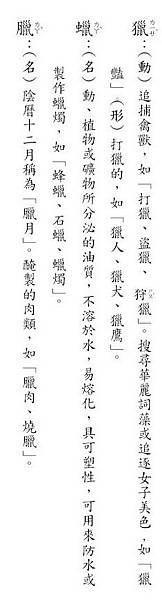 獵ㄌㄧㄝˋ：（動）追捕禽獸，如「打獵、盜獵、狩獵」。搜尋華麗詞藻或追逐女子美色，如「獵
豔」（形）打獵的，如「獵人、獵犬、獵鷹」。
蠟ㄌㄚˋ：（名）動、植物或礦物所分泌的油質，不溶於水，易熔化，具可塑性，可用來防水或
製作蠟燭，如「蜂蠟、石蠟、蠟燭」。
臘ㄌㄚˋ：（名）陰曆十二月稱為「臘月」。醃製的肉類，如「臘肉、燒臘」。